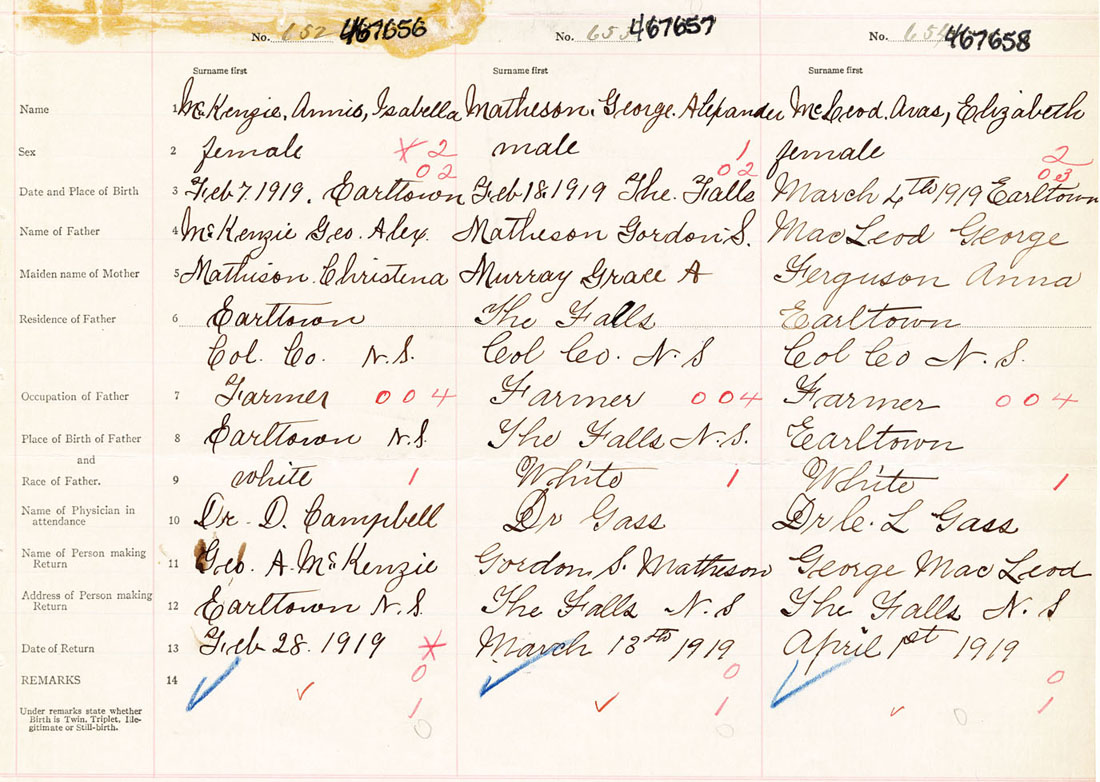 No. 652 467656 No. 653 467657 No. 654 467658
Surname first Surname first Surname first
Name 1 McKenzie, Annie, Isabella Matheson, George. Alexander McLeod. Avas, Elizabeth
Sex 2 female X 2 male 1 female 2
02 02 03
Date and Place of Birth 3 Feb 7. 1919. Earltown Feb 18 1919 The. Falls March 4th 1919 Earltown
Name of Father 4 McKenzie Geo. Alex. Matheson Gordon S. MacLeod George
Maiden name of Mother 5 Mathison. Christena Murray Grace A Ferguson Anna
Residence of Father 6 Earltown The Falls Earltown
Col. Co. N.S. Col Co. N.S Col Co N.S.
Occupation of Father 7 Farmer 004 Farmer 004 Farmer 004
Place of Birth of Father 8 Earltown N.S. The Falls N.S. Earltown
and
Race of Father. 9 white 1 White 1 White 1
Name of Physician in
attendance 10 Dr. D. Campbell Dr Gass Dr C. L Gass
Name of Person making
Return 11 Geo. A. McKenzie Gordon S. Matheson George MacLeod
Address of Person making
Return 12 Earltown N.S. The Falls N.S The Falls N.S
Date of Return 13 Feb 28. 1919 X March 13th 1919 April 1st 1919
REMARKS 14 0 0 0
Under remarks state whether
Birth is Twin, Triplet, Ille-
gitimate or Still-birth. 1 1 1
0 0 0